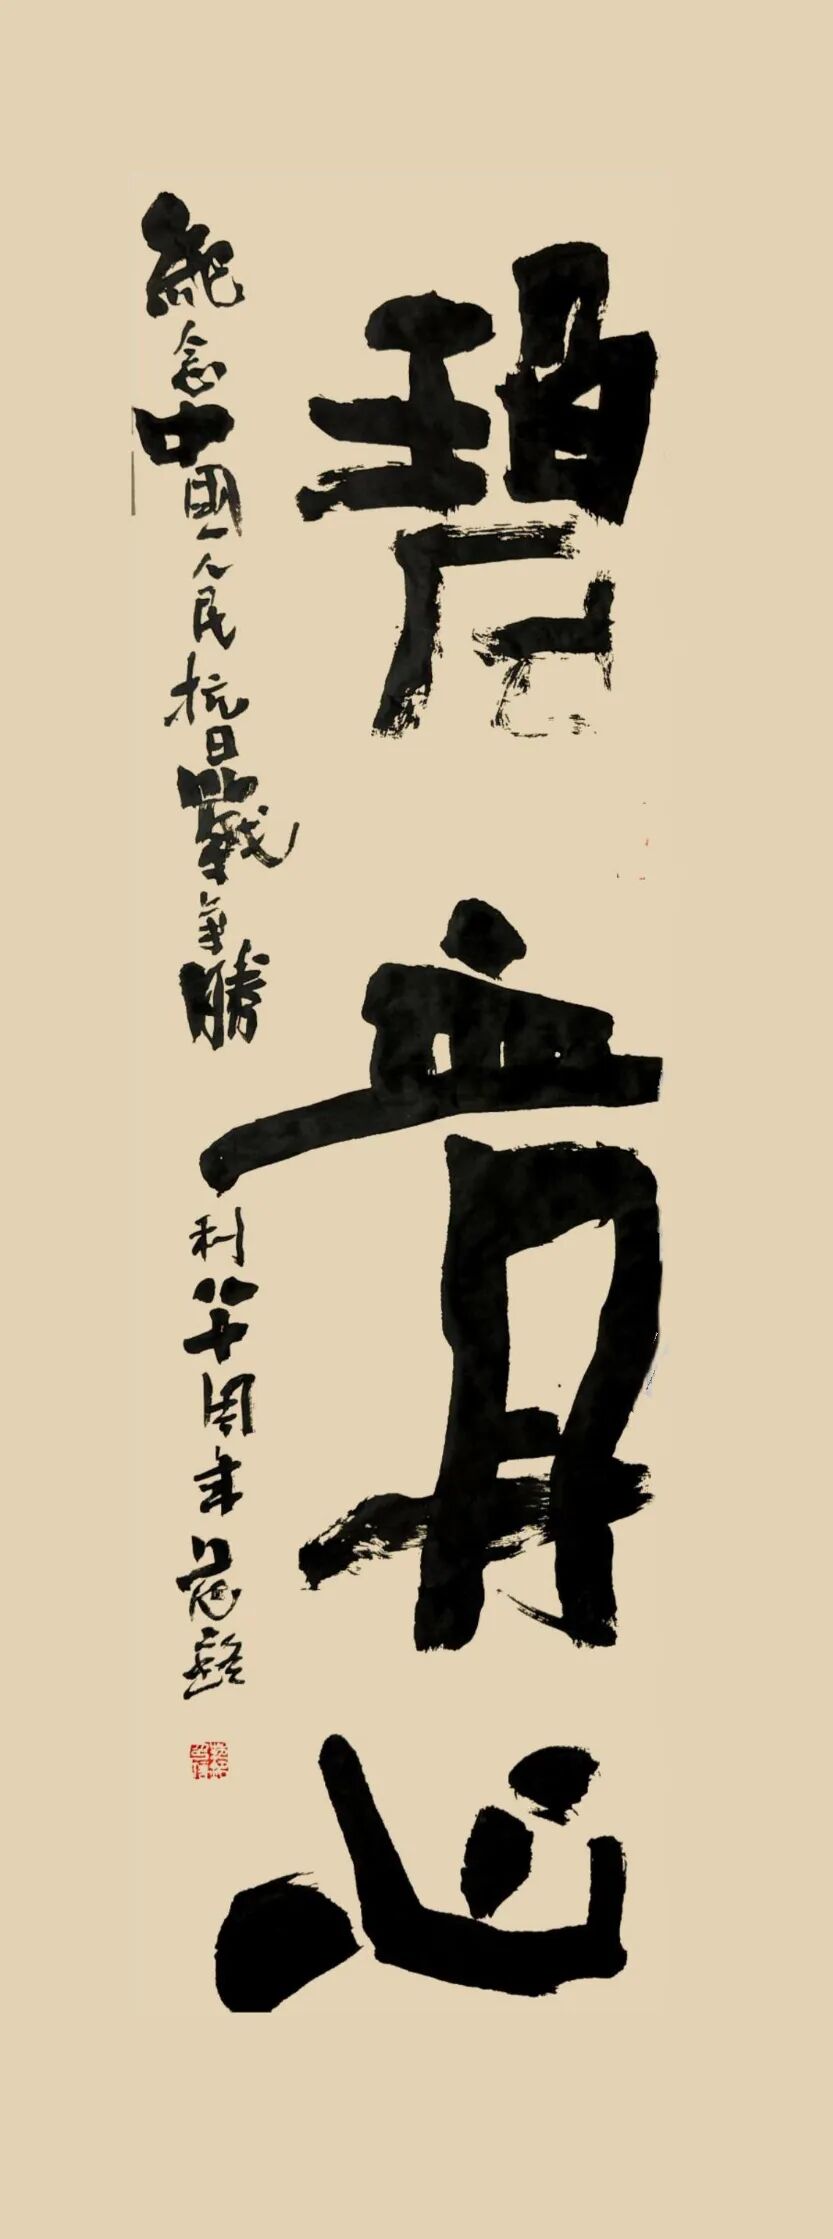 碧血丹心
紀念中國人民抗日戰爭勝利八十周年